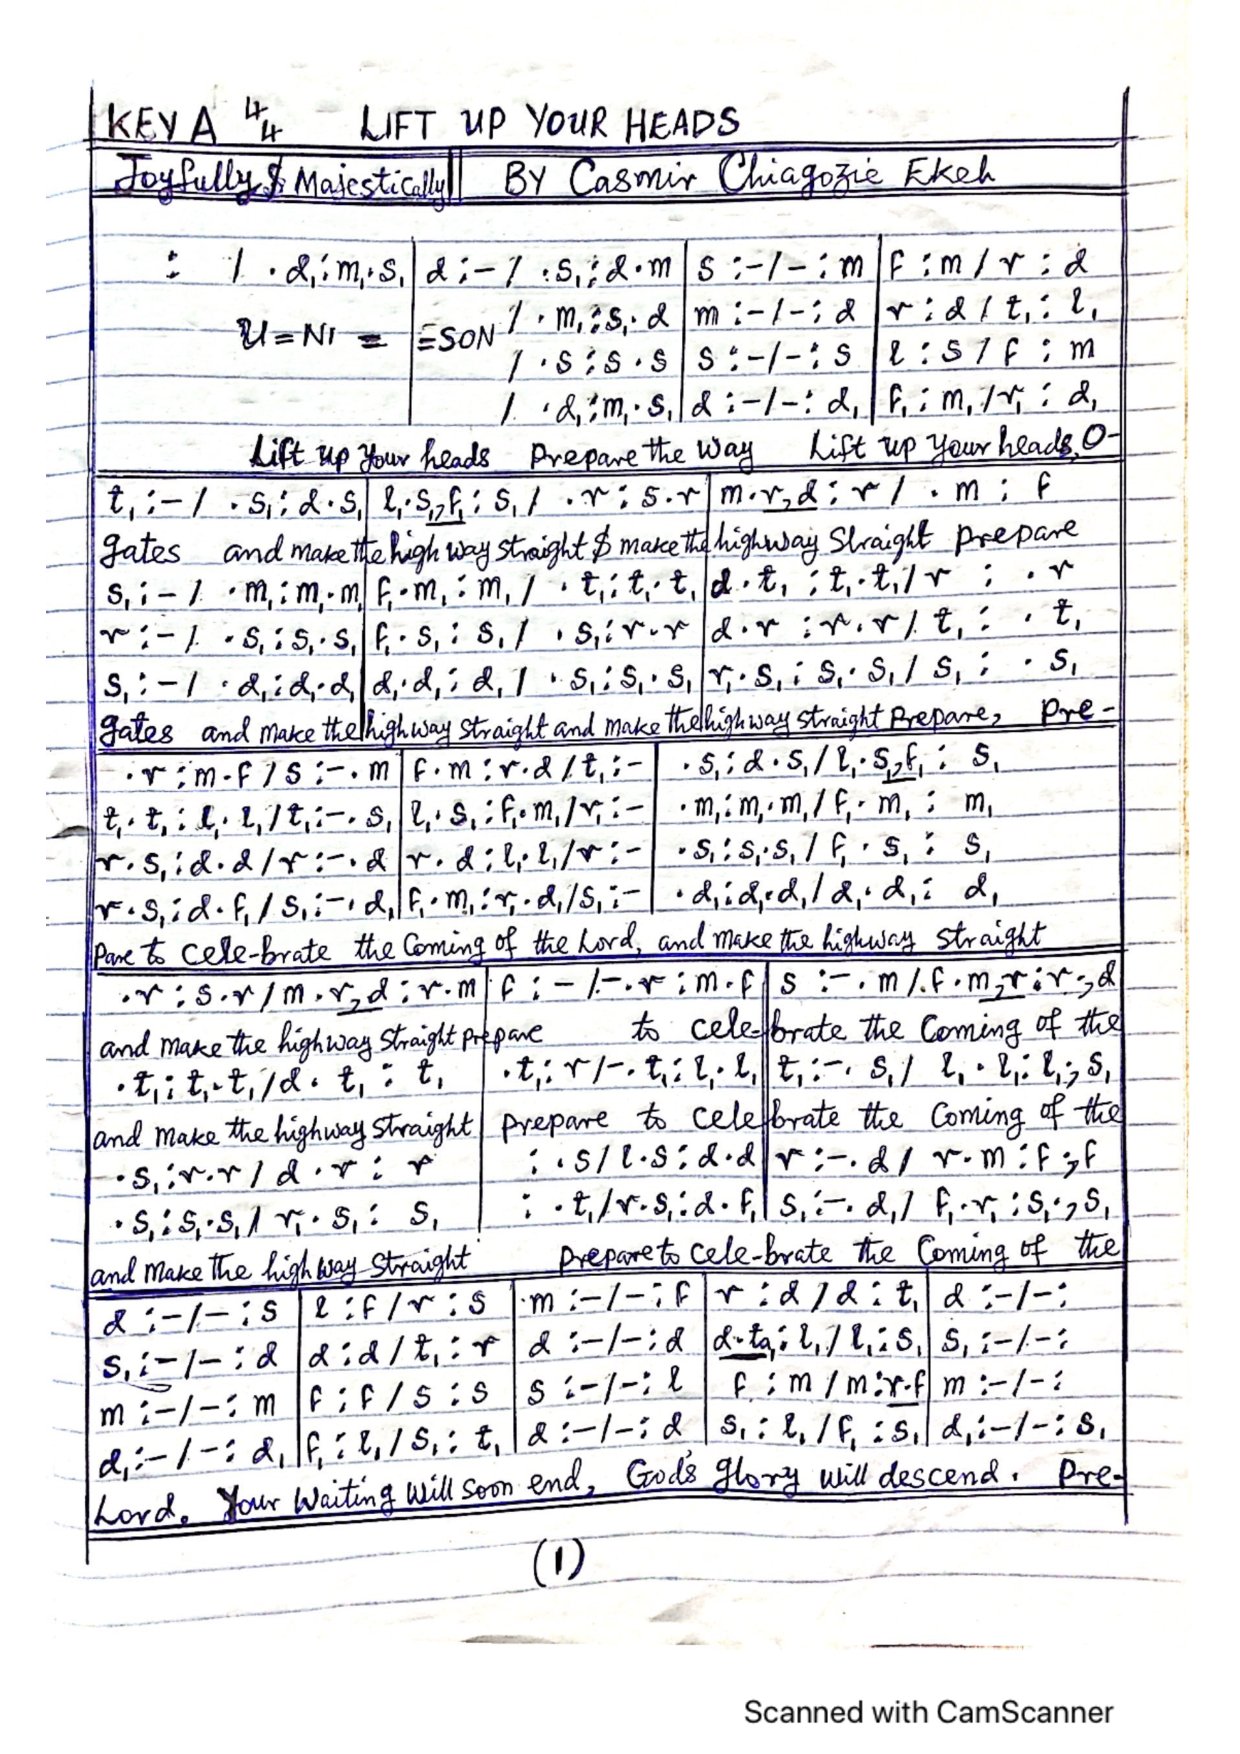 KEY A 4/4 LIFT UP YOUR HEADS
Joyfully & Majestically || BY Casmir Chiagozie Ekeh
: / . d₁ : m₁ . s₁ | d : - / . s₁ : d . m | s : - / - : m | f : m / r : d
U = NI = = SON / . m₁ : s₁ . d | m : - / - : d | r : d / t₁ : l₁
/ . s : s . s | s : - / - : s | l : s / f : m
/ . d₁ : m₁ . s₁ | d : - / - : d₁ | f₁ : m₁ / r₁ : d₁
Lift up your heads prepare the way Lift up your heads, O-
t₁ : - / . s₁ : d . s₁ | l₁ . s₁, f₁ : s₁ / . r : s . r | m . r, d : r / . m : f
gates and make the high way straight & make the highway straight prepare
s₁ : - / . m₁ : m₁ . m₁ | f₁ . m₁ : m₁ / . t₁ : t₁ . t₁ | d . t₁ : t₁ . t₁ / r : . r
r : - / . s₁ : s₁ . s₁ | f₁ . s₁ : s₁ / . s₁ : r . r | d . r : r . r / t₁ : . t₁
s₁ : - / . d₁ : d₁ . d₁ | d₁ . d₁ : d₁ / . s₁ : s₁ . s₁ | r₁ . s₁ : s₁ . s₁ / s₁ : . s₁
gates and make the highway straight and make the highway straight Prepare, Pre-
. r : m . f / s : - . m | f . m : r . d / t₁ : - | . s₁ : d . s₁ / l₁ . s₁, f₁ : s₁
t₁ . t₁ : l₁ . l₁ / t₁ : - . s₁ | l₁ . s₁ : f₁ . m₁ / r₁ : - | . m₁ : m₁ . m₁ / f₁ . m₁ : m₁
r . s₁ : d . d / r : - . d | r . d : l₁ . l₁ / r : - | . s₁ : s₁ . s₁ / f₁ . s₁ : s₁
r . s₁ : d . f₁ / s₁ : - . d₁ | f₁ . m₁ : r₁ . d₁ / s₁ : - | . d₁ : d₁ . d₁ / d₁ . d₁ : d₁
Pare to Cele-brate the Coming of the Lord, and make the highway straight
. r : s . r / m . r, d : r . m | f : - / - . r : m . f | s : - . m / f . m, r : r ., d
and make the highway straight prepare to cele-brate the Coming of the
. t₁ : t₁ . t₁ / d . t₁ : t₁ | . t₁ : r / - . t₁ : l₁ . l₁ | t₁ : - . s₁ / l₁ . l₁ : l₁ ., s₁
and make the highway straight | prepare to cele-brate the Coming of the
. s₁ : r . r / d . r : r | : . s / l . s : d . d | r : - . d / r . m : f ., f
. s₁ : s₁ . s₁ / r₁ . s₁ : s₁ | : . t₁ / r . s₁ : d . f₁ | s₁ : - . d₁ / f₁ . r₁ : s₁ ., s₁
and make the high way straight prepare to cele-brate the Coming of the
d : - / - : s | l : f / r : s | m : - / - : f | r : d / d : t₁ | d : - / - :
s₁ : - / - : d | d : d / t₁ : r | d : - / - : d | d . ta₁ : l₁ / l₁ : s₁ | s₁ : - / - :
m : - / - : m | f : f / s : s | s : - / - : l | f : m / m : r . f | m : - / - :
d₁ : - / - : d₁ | f₁ : l₁ / s₁ : t₁ | d : - / - : d | s₁ : l₁ / f₁ : s₁ | d₁ : - / - : s₁
Lord. Your Waiting Will soon end, God's glory will descend. Pre-
(1)
Scanned with CamScanner